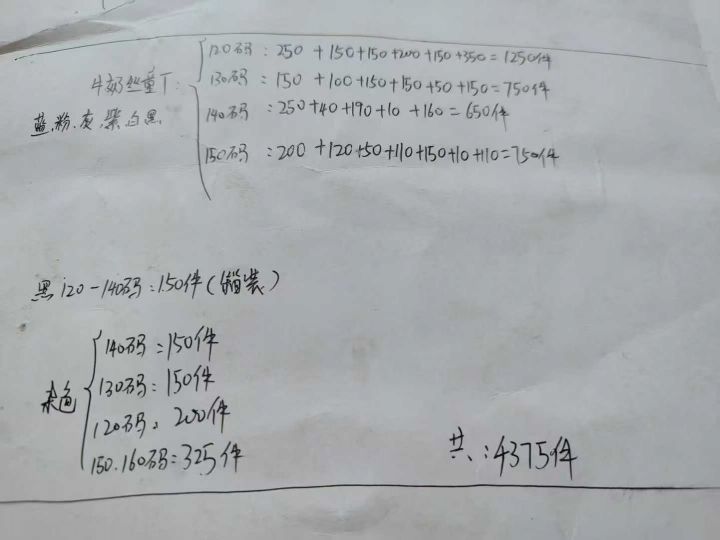 牛奶丝童T:
蓝,粉,灰,紫,白,黑
120码:250+150+150+200+150+350=1250件
130码:150+100+150+150+50+150=750件
140码:250+40+190+10+160=650件
150码:200+120+50+110+150+10+110=750件
黑120-140码:150件(箱装)
杂色
140码:150件
130码:150件
120码:200件
150.160码:325件
共:4375件